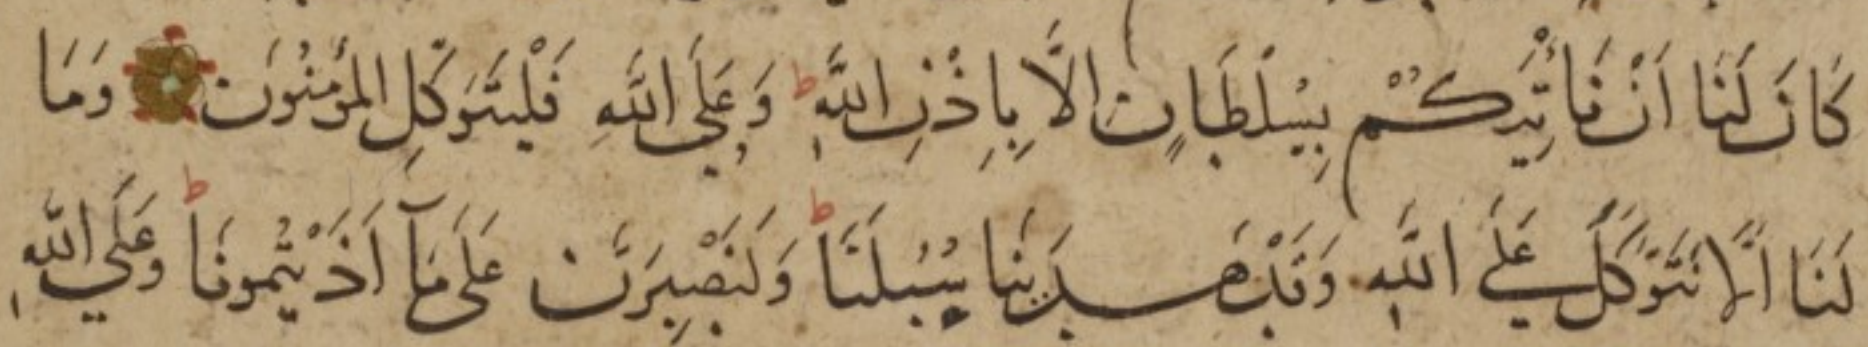 كَانَ لَنَا اَنْ نَأْتِيَكُمْ بِسُلْطَانٍ اِلَّا بِاِذْنِ اللَّهِ ط وَعَلَى اللَّهِ فَلْيَتَوَكَّلِ الْمُؤْمِنُونَ وَمَا
لَنَا اَلَّا نَتَوَكَّلَ عَلَى اللَّهِ وَقَدْ هَدٰينَا سُبُلَنَا ط وَلَنَصْبِرَنَّ عَلَى مَآ اٰذَيْتُمُونَا ط وَعَلَى اللَّهِ